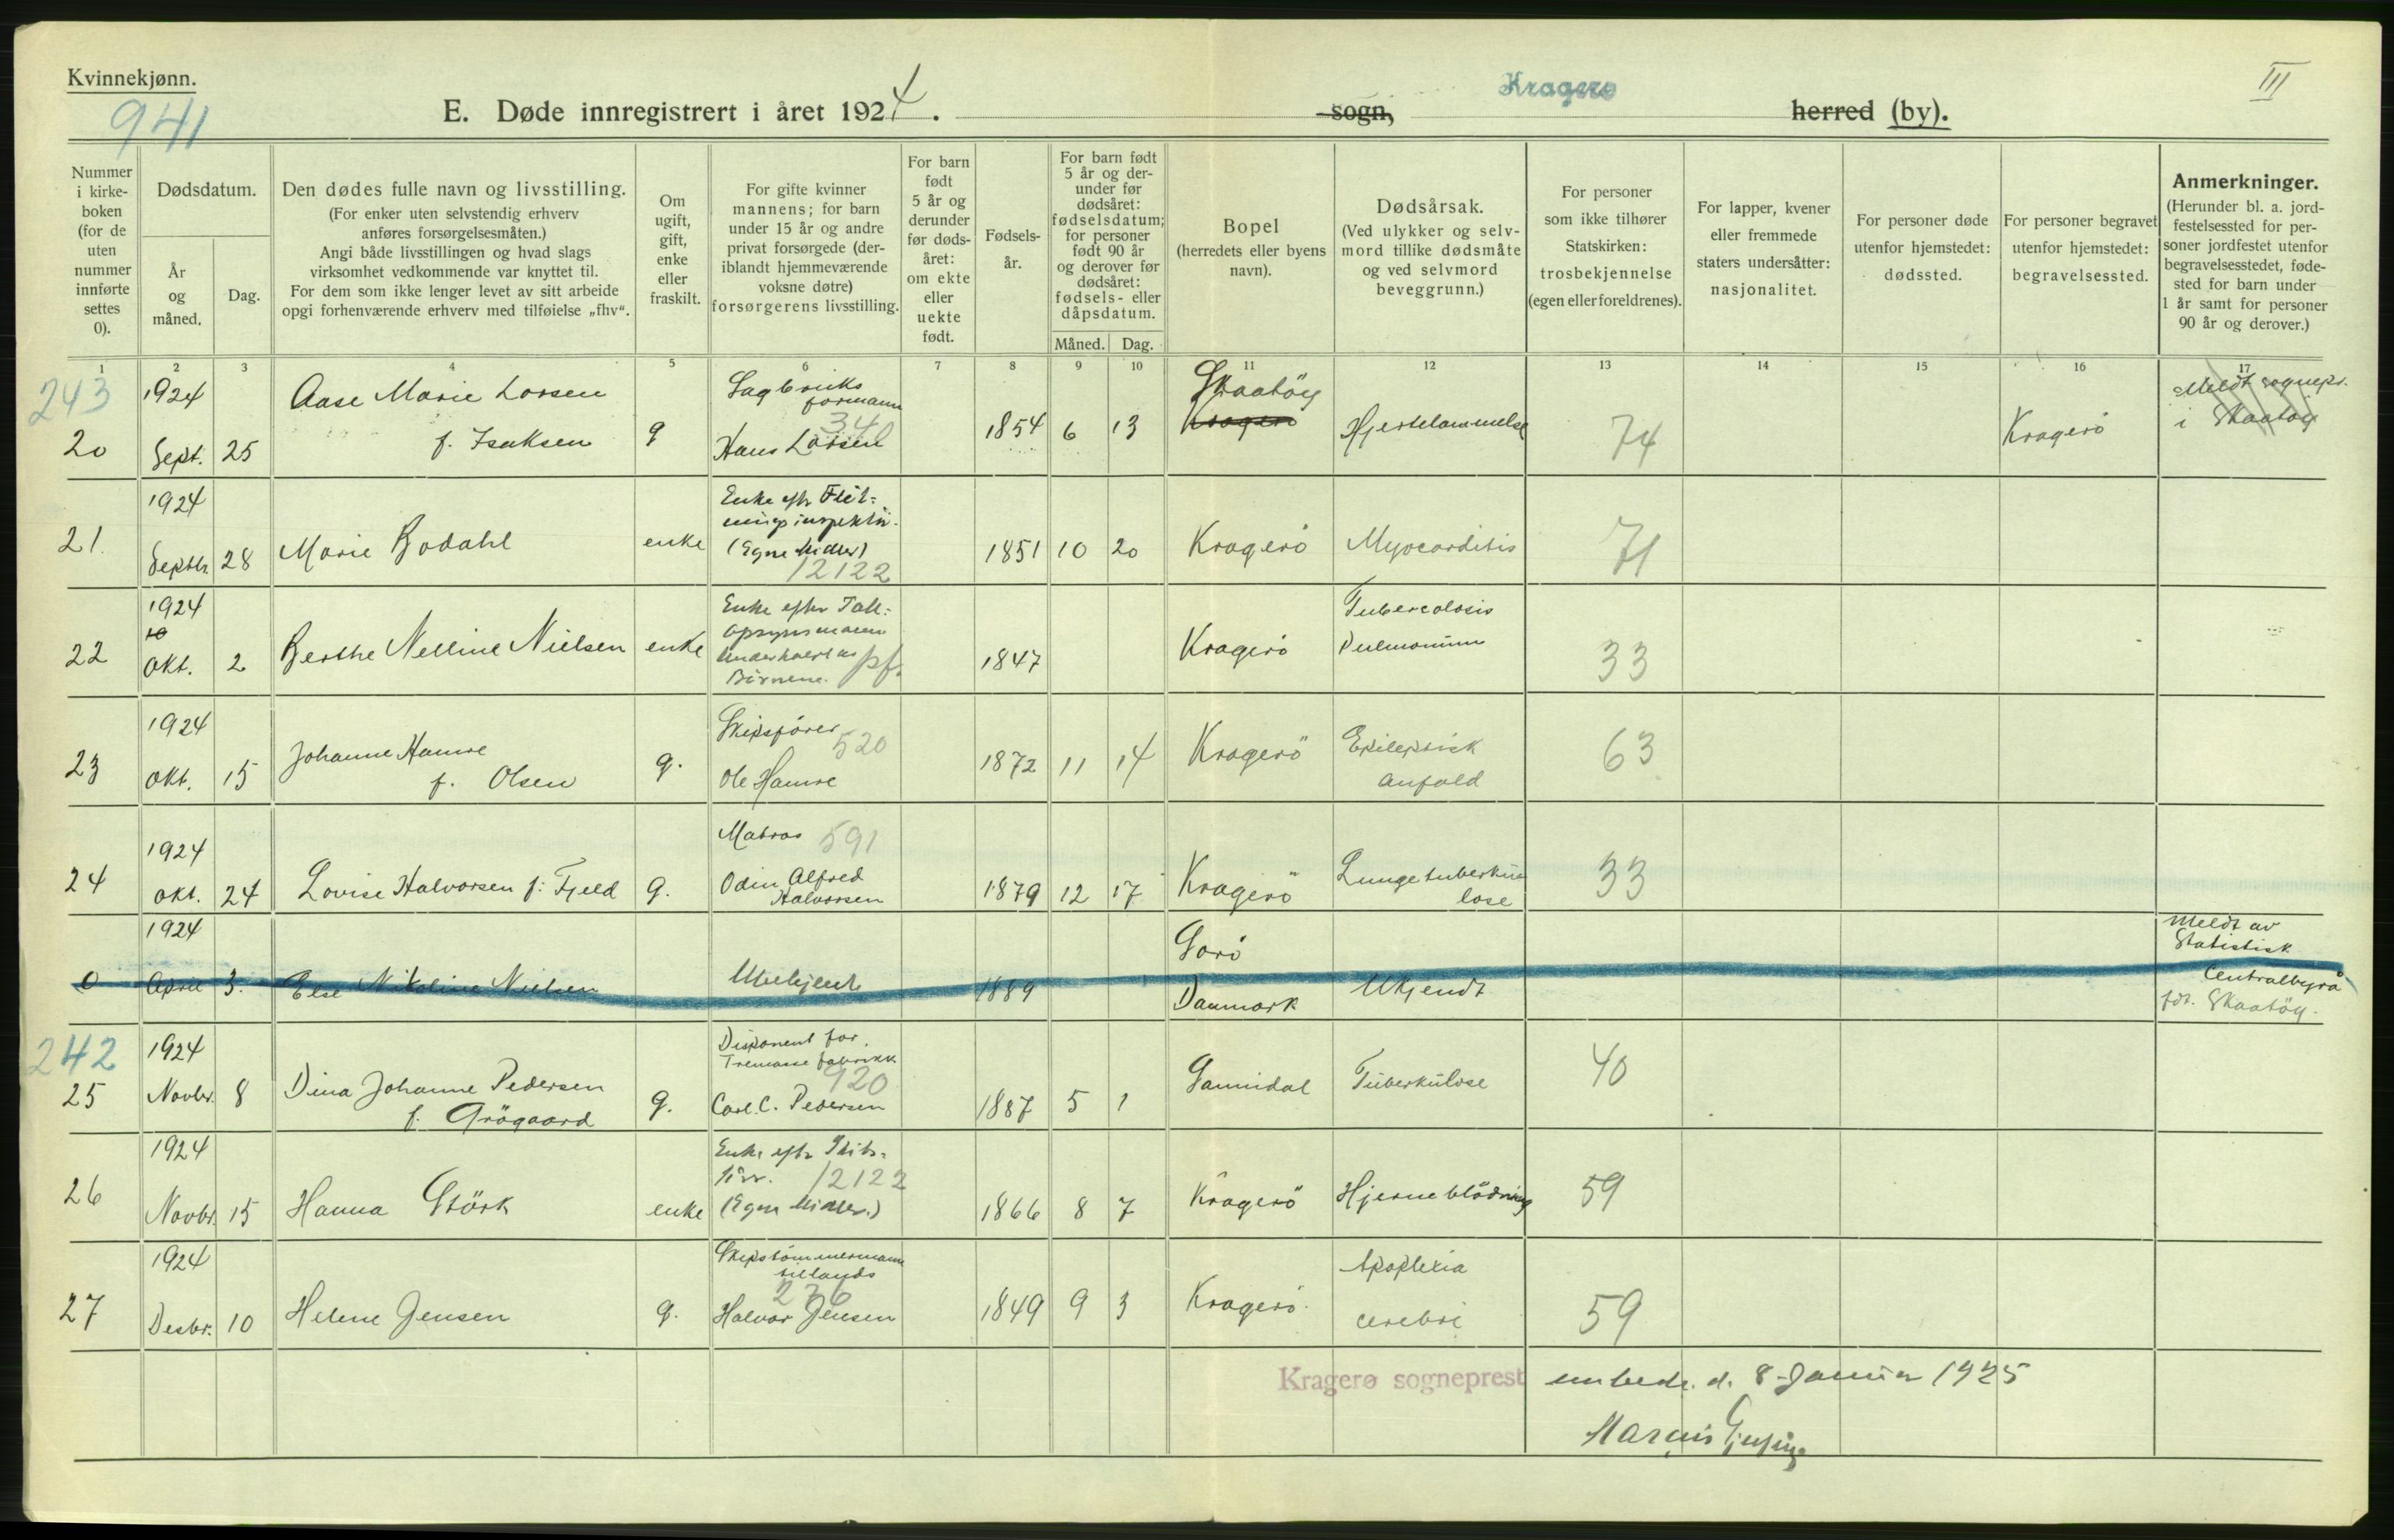 Kvinnekjønn.
941
III
E. Døde innregistrert i året 1924. sogn, Kragerø herred (by).
Nummer i kirkeboken (for de uten nummer innførte settes 0).
Dødsdatum.
År og måned.
Dag.
Den dødes fulle navn og livsstilling.
(For enker uten selvstendig erhverv anføres forsørgelsesmåten.)
Angi både livsstillingen og hvad slags virksomhet vedkommende var knyttet til.
For dem som ikke lenger levet av sitt arbeide opgi forhenværende erhverv med tilføielse „fhv“.
Om ugift, gift, enke eller fraskilt.
For gifte kvinner mannens; for barn under 15 år og andre privat forsørgede (deriblandt hjemmeværende voksne døtre) forsørgerens livsstilling.
For barn født 5 år og derunder før dødsåret: om ekte eller uekte født.
Fødselsår.
For barn født 5 år og derunder før dødsåret: fødselsdatum; for personer født 90 år og derover før dødsåret: fødsels- eller dåpsdatum.
Måned.
Dag.
Bopel (herredets eller byens navn).
Dødsårsak.
(Ved ulykker og selvmord tillike dødsmåte og ved selvmord beveggrunn.)
For personer som ikke tilhører Statskirken: trosbekjennelse (egen eller foreldrenes).
For lapper, kvener eller fremmede staters undersåtter: nasjonalitet.
For personer døde utenfor hjemstedet: dødssted.
For personer begravet utenfor hjemstedet: begravelsessted.
Anmerkninger.
(Herunder bl. a. jordfestelsessted for personer jordfestet utenfor begravelsesstedet, fødested for barn under 1 år samt for personer 90 år og derover.)
1 2 3 4 5 6 7 8 9 10 11 12 13 14 15 16 17
243
20 1924 Sept. 25 Aase Marie Larsen f. Isaksen g Sagbruksformann 346 Hans Larsen 1854 6 13 Skaatöy Kragerö Hjertelammelse 74 Kragerö Meldt sognepr. i Skaatöy
21. 1924 Septbr. 28 Marie Bodahl enke Enke eftr inspektör. (Egne Midler) 12122 1851 10 20 Kragerö Myocarditis 71
22 1924 10 Okt. 2 Berthe Nelline Nielsen enke Enke efter opsynsmann Underholdt av Börnene. pf. 1847 Kragerö Tuberculosis Pulmonum 33
23 1924 Okt. 15 Johanne Hamre f. Olsen g. Skipsförer 520 Ole Hamre 1872 11 14 Kragerö Epileptisk anfald 63
24 1924 Okt. 24 Lovise Halvorsen f. Fjeld g. Matros 591 Odin Alfred Halvorsen 1879 12 17 Kragerö Lungetuberkulose 33
0 1924 April 3. Else Nikoline Nielsen Ukjent 1889 Sorö Danmark Ukjendt Meldt av Statistisk Centralbyrå fdt. Skaatöy.
242
25 1924 Novbr. 8 Dina Johanne Pedersen f. Grögaard g. Disponent for Tremassefabrikk 920 Carl C. Pedersen 1887 5 1 Sannidal Tüberkülose 40
26 1924 Novbr. 15 Hanna Störk enke Enke eftr Skibsförer. 12122 (Egne Midler.) 1866 8 7 Kragerö Hjerneblödning 59
27 1924 Desbr. 10 Helene Jensen g. Skipstömmermann tillands 276 Halvor Jensen 1849 9 3 Kragerö. Apoplexia cerebri 59
Kragerø sogneprest embede. d. 8 Januar 1925